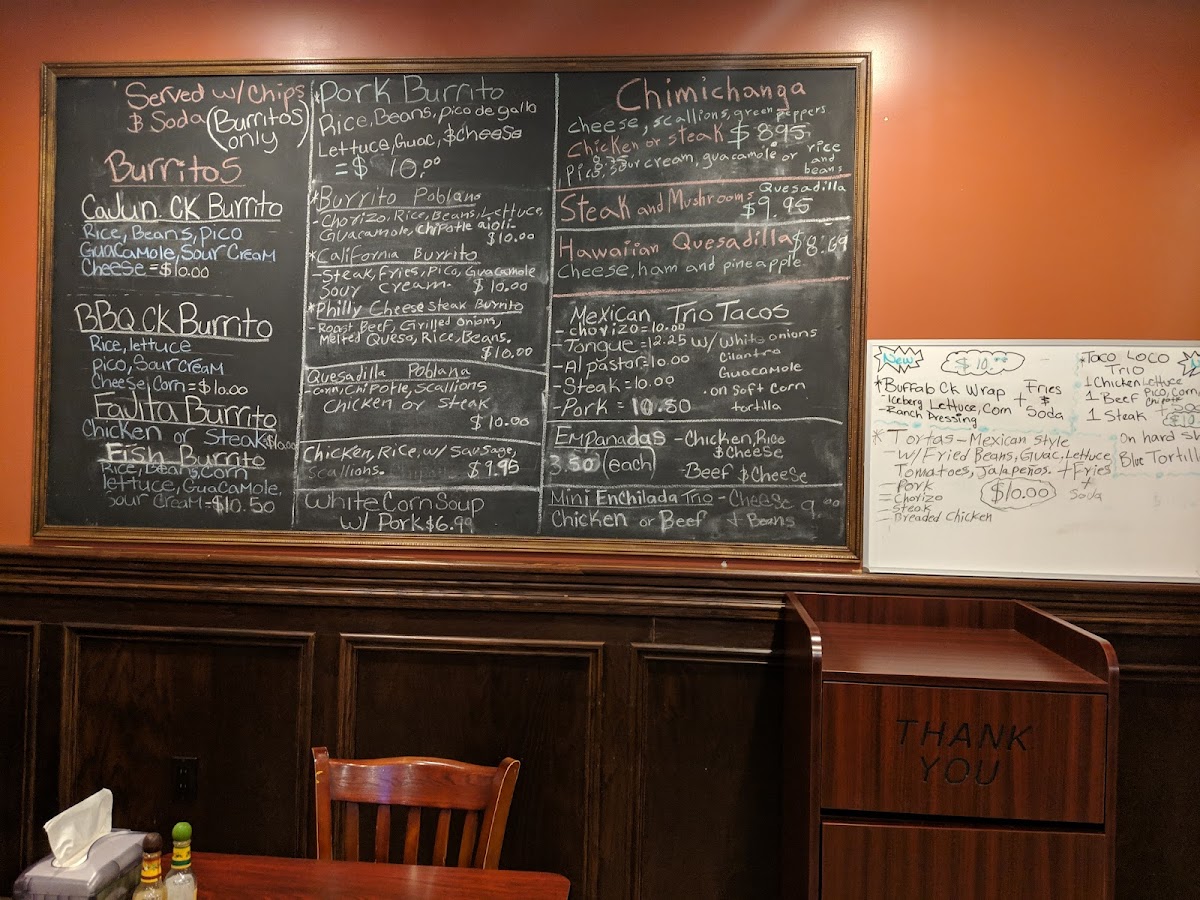 Served w/ Chips
& Soda (Burritos
only)
Burritos
Cajun CK Burrito
Rice, Beans, Pico
Guacamole, Sour Cream
Cheese = $10.00
BBQ CK Burrito
Rice, lettuce
Pico, Sour Cream
Cheese, Corn = $10.00
Fajita Burrito
Chicken or Steak $10.00
Fish Burrito
Rice, Beans, Corn
lettuce, Guacamole,
Sour Cream = $10.50
*Pork Burrito
Rice, Beans, pico de gallo
Lettuce, Guac, $ Cheese
= $ 10.00
*Burrito Poblano
- Chorizo, Rice, Beans, Lettuce,
Guacamole, Chipotle aioli-
$10.00
*California Burrito
- Steak, Fries, Pico, Guacamole
Sour Cream. $10.00
*Philly Cheese Steak Burrito
- Roast Beef, Grilled Onions,
Melted Queso, Rice, Beans.
$10.00
Quesadilla Poblana
- Corn, Chipotle, Scallions
Chicken or Steak
$10.00
Chicken, Rice, w/ Sausage,
Scallions. $9.95
White Corn Soup
w/ Pork $6.99
Chimichanga
cheese, scallions, green peppers
Chicken or steak $8.95
Pico, sour cream, guacamole or rice
and
beans
Steak and Mushrooms Quesadilla
$9.95
Hawaiian Quesadilla $8.69
Cheese, ham and pineapple
Mexican Trio Tacos
- chorizo = 10.00
- Tongue = 12.25 w/ White onions
- Al pastor = 10.00 Cilantro
Guacamole
- Steak = 10.00 . on Soft Corn
- Pork = 10.50 tortilla
Empanadas - Chicken, Rice
$ Cheese
3.50 (each) - Beef $ Cheese
Mini Enchilada Trio - Cheese 9.00
Chicken or Beef + Beans
New $10.00
*Buffalo Ck Wrap + Fries
- Iceberg Lettuce, Corn $
- Ranch Dressing Soda
*Taco Loco
Trio
1 Chicken Lettuce
1 Beef Pico, Corn
Chipotle
1 Steak
On hard
Blue Tortill
* Tortas - Mexican Style
w/ Fried Beans, Guac, Lettuce
Tomatoes, Jalapeños. + Fries
+
Soda
- Pork $10.00
- Chorizo
- Steak
- Breaded Chicken
THANK
YOU